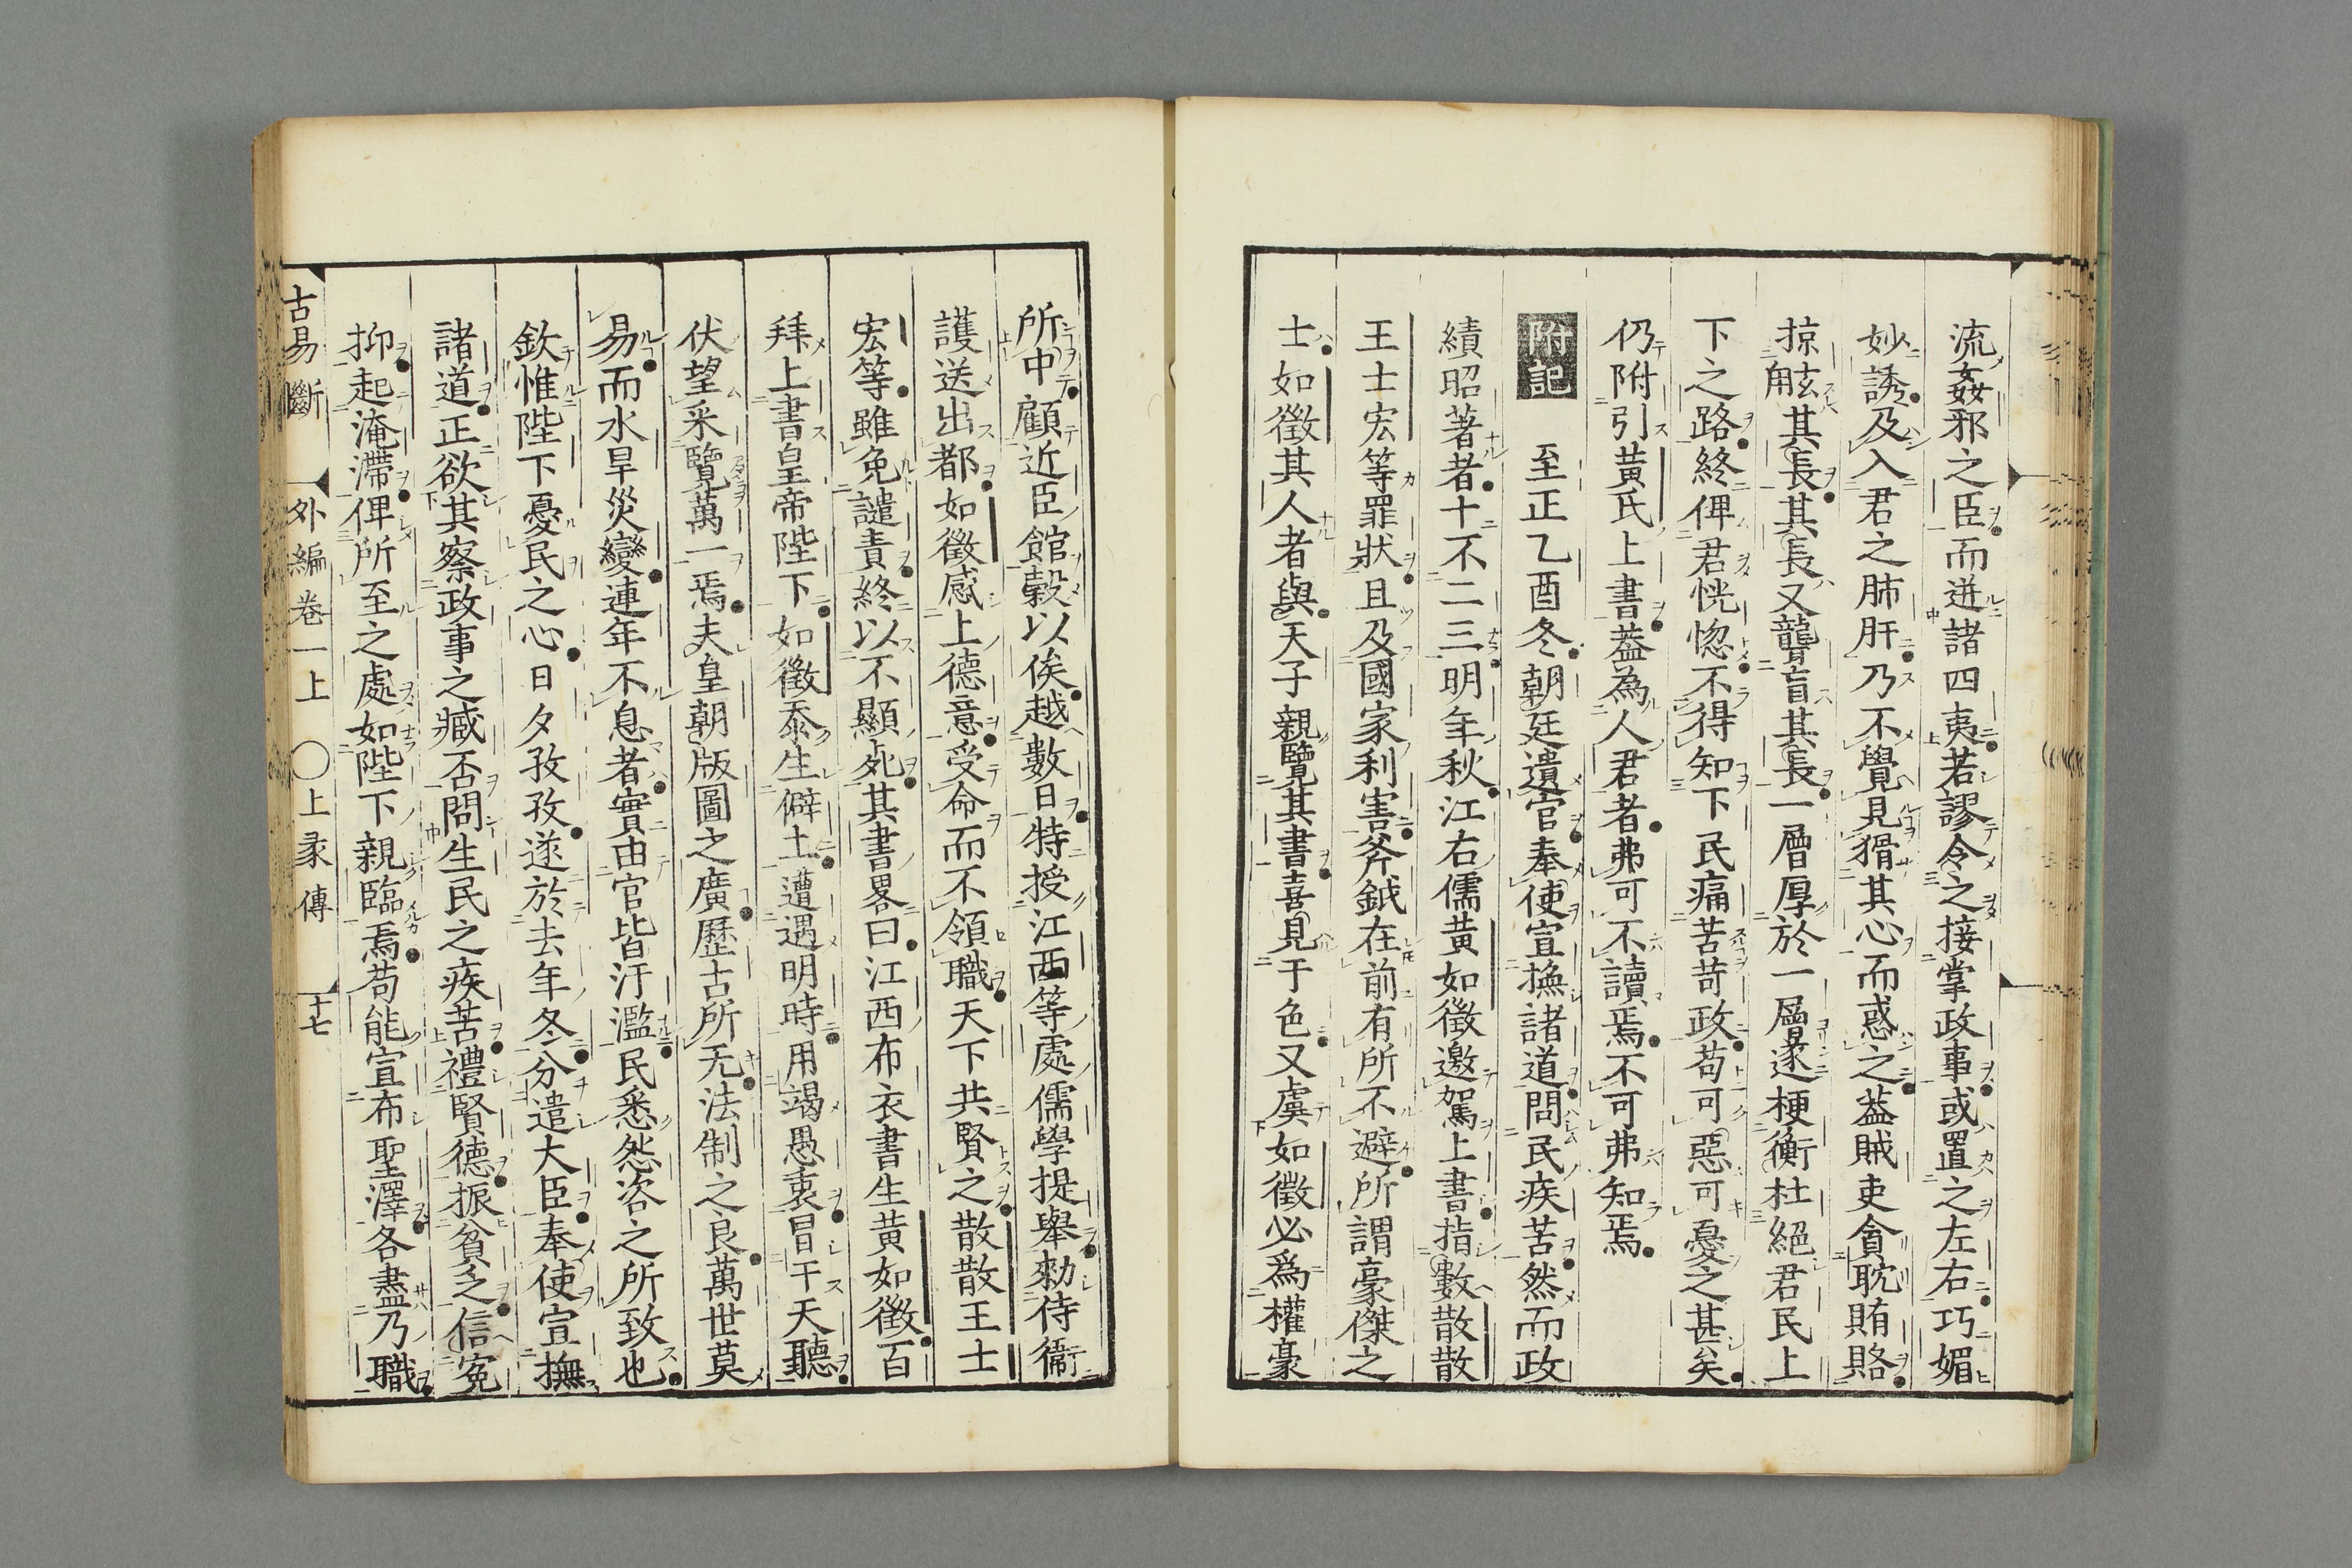 流姦邪之臣而迸諸四夷若謬令之接掌政事或置之左右巧媚
妙誘及入君之肺肝乃不覺見猾其心而惑之葢賊吏貪耽賄賂
掠其長其長又聾盲其長一層厚於一層遂梗衡杜絕君民上
下之路終俾君恍惚不得知下民痛苦苛政苟可惡可憂之甚矣
仍附引黃氏上書葢為人君者弗可不讀焉不可弗知焉
附記 至正乙酉冬朝廷遣官奉使宣撫諸道問民疾苦然而政
績昭著者十不二三明年秋江右儒黃如徵邀駕上書指數散散
王士宏等罪狀且及國家利害斧鉞在前有所不避所謂豪傑之
士如徵其人者與天子親覽其書喜見于色又虞如徵必爲權豪
所中顧近臣館穀以俟越數日特授江西等處儒學提舉勑侍衞
護送出都如徵感上德意受命而不領職天下共賢之散散王士
宏等雖免譴責終以不顯死其書畧曰江西布衣書生黄如徵百
拜上書皇帝陛下如徵忝生僻土遭遇明時用竭愚衷冒干天聽
伏望采覽萬一焉夫皇朝版圖之廣歷古所无法制之良萬世莫
易而水旱災變連年不息者實由官皆汙濫民悉怨咨之所致也
欽惟陛下憂民之心日夕孜孜遂於去年冬分遣大臣奉使宣撫
諸道正欲其察政事之臧否問生民之疾苦禮賢德振貧乏信冤
抑起淹滯俾所至之處如陛下親臨焉苟能宣布聖澤各盡乃職
古易斷 外編卷一上 〇上彖傳 十七